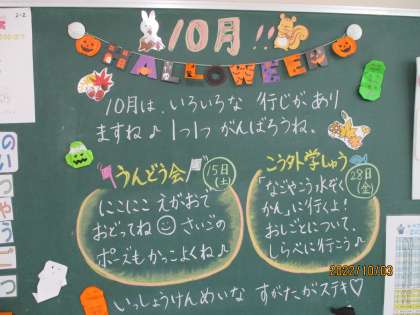 10月!!
HALLOWEEN
10月は、いろいろな 行じがあり
ますね♪ 1つ1つ がんばろうね。
うんどう会
15日(土)
にこにこ えがおで
おどってね☺ さいごの
ポーズもかっこよくね♪
こう外学しゅう
28日(金)
「なごやこう水ぞく
かん」に行くよ!
おしごとについて、
しらべに行こう♪
いっしょうけんめいな すがたがステキ♡
2022/10/03
2-2